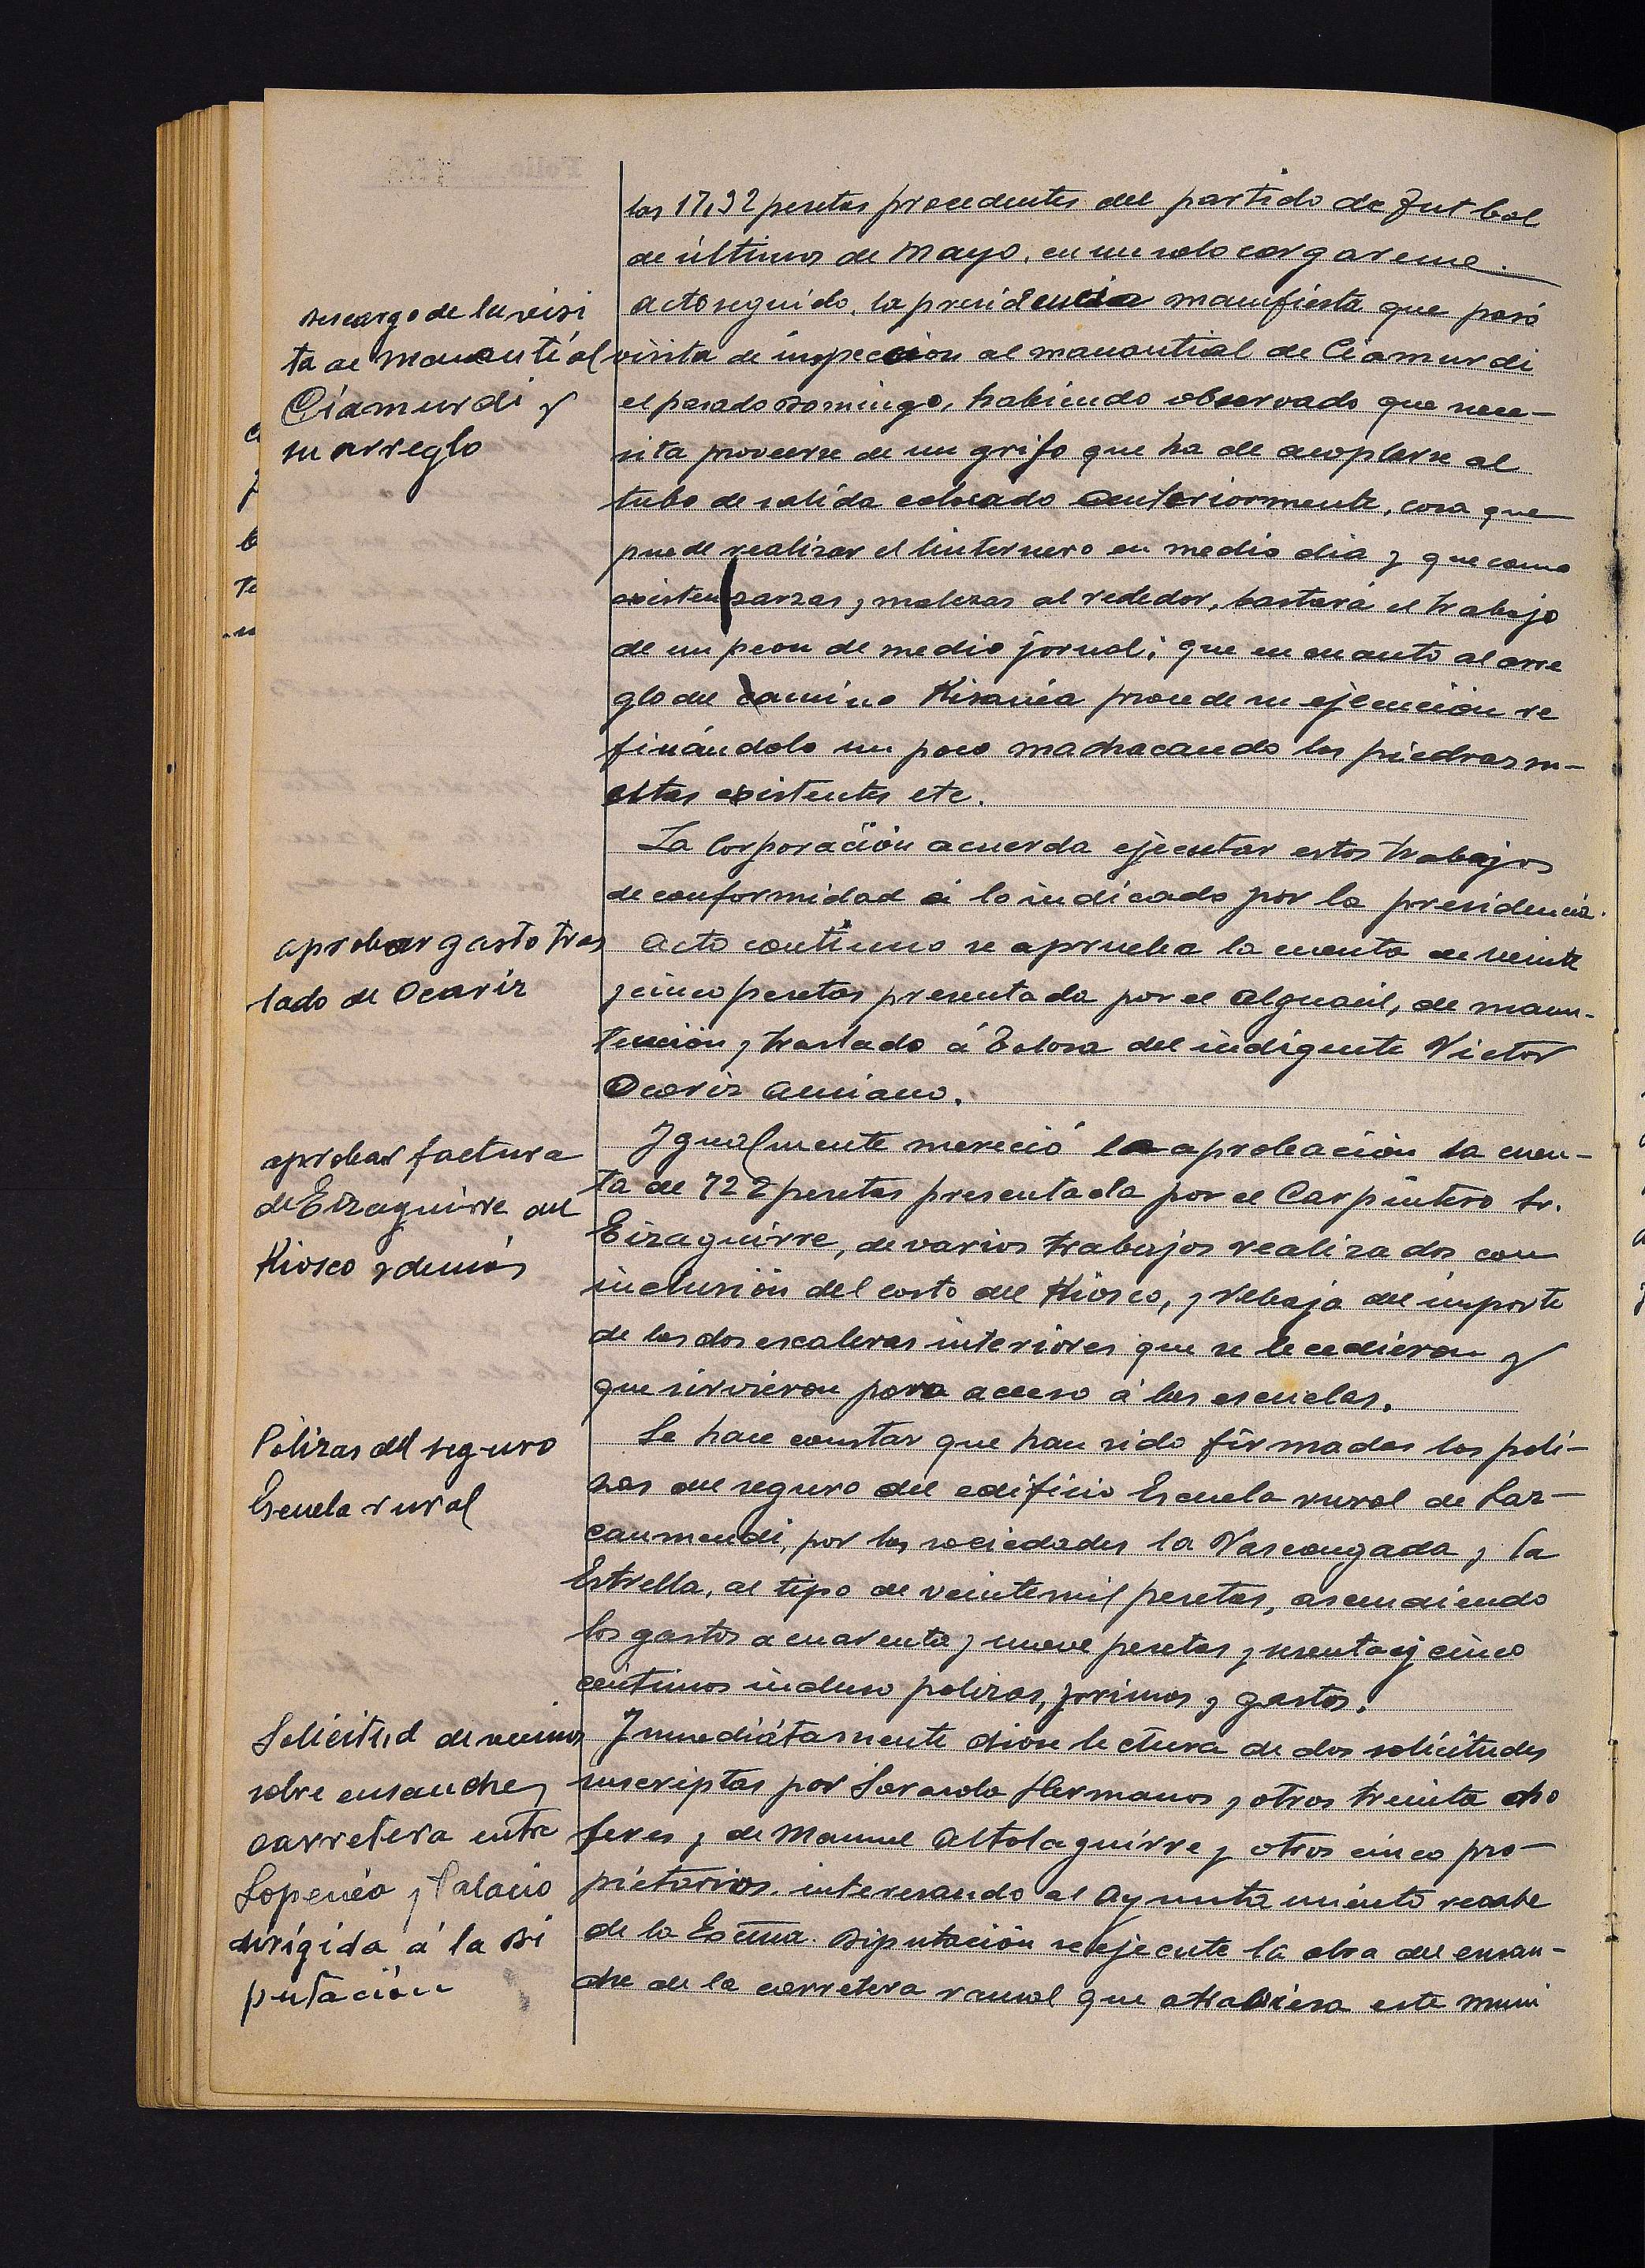 las 17,32 pesetas procedentes del partido de futbol
de últimos de Mayo, en un solo cargareme.
Descargo de la visi
ta al Manantial
Ciamurdi y
su arreglo
acto seguido, la presidencia manifiesta que pasó
visita de inspeccion al manantial de Ciamurdi
el pasado Domingo, habiendo observado que nece-
sita proveerse de un grifo que ha de acoplarse al
tubo de salida colocado anteriormente, cosa que
puede realizar el linternero en medio dia y que como
existen zarzas y malezas al rededor, bastará el trabajo
de un peon de medio jornal; que en cuanto al arre
glo del camino procede su ejecución re
finándolo un poco machacando las piedras su-
eltas existentes etc.
La Corporación acuerda ejecutar estos trabajos
de conformidad á lo indicado por la presidencia.
aprobar gasto tras
lado de Ocariz
Acto contínuo se aprueba la cuenta de veinte
y cinco pesetas presentada por el Alguacil, de manu-
tención y traslado á Tolosa del indigente Victor
Ocariz
aprobar factura
de Eizaguirre del
Kiosco y demás
Igualmente mereció la aprobación la cuen-
ta de 722 pesetas presentada por el Carpintero Sr.
Eizaguirre, de varios trabajos realizados con
inclusión del costo del Kiosco, y rebaja del importe
de las dos escaleras interiores que se le cedieron y
que sirvieron para acceso á las escuelas.
Pólizas del seguro
Escuela rural
Se hace constar que han sido firmadas las póli-
zas del seguro del edificio Escuela rural de Laz-
caumendi, por las sociedades la Vascongada y la
Estrella, al tipo de veintemil pesetas, ascendiendo
los gastos a cuarenta y nueve pesetas y cinco
centimos incluso polizas, primas y gastos.
Solicitud de vecinos
sobre ensanche
carretera entre
y Palacio
dirigida á la Di
putación
Inmediatamente dióse lectura de dos solicitudes
suscriptas por Sarasola Hermanos y otros treinta cho
feres y de Manuel Altolaguirre y otros cinco pro-
pietarios, interesando al Ayuntamiento recabe
de la Excma. Diputación se ejecute la obra del ensan-
che de la carretera que atraviesa este muni